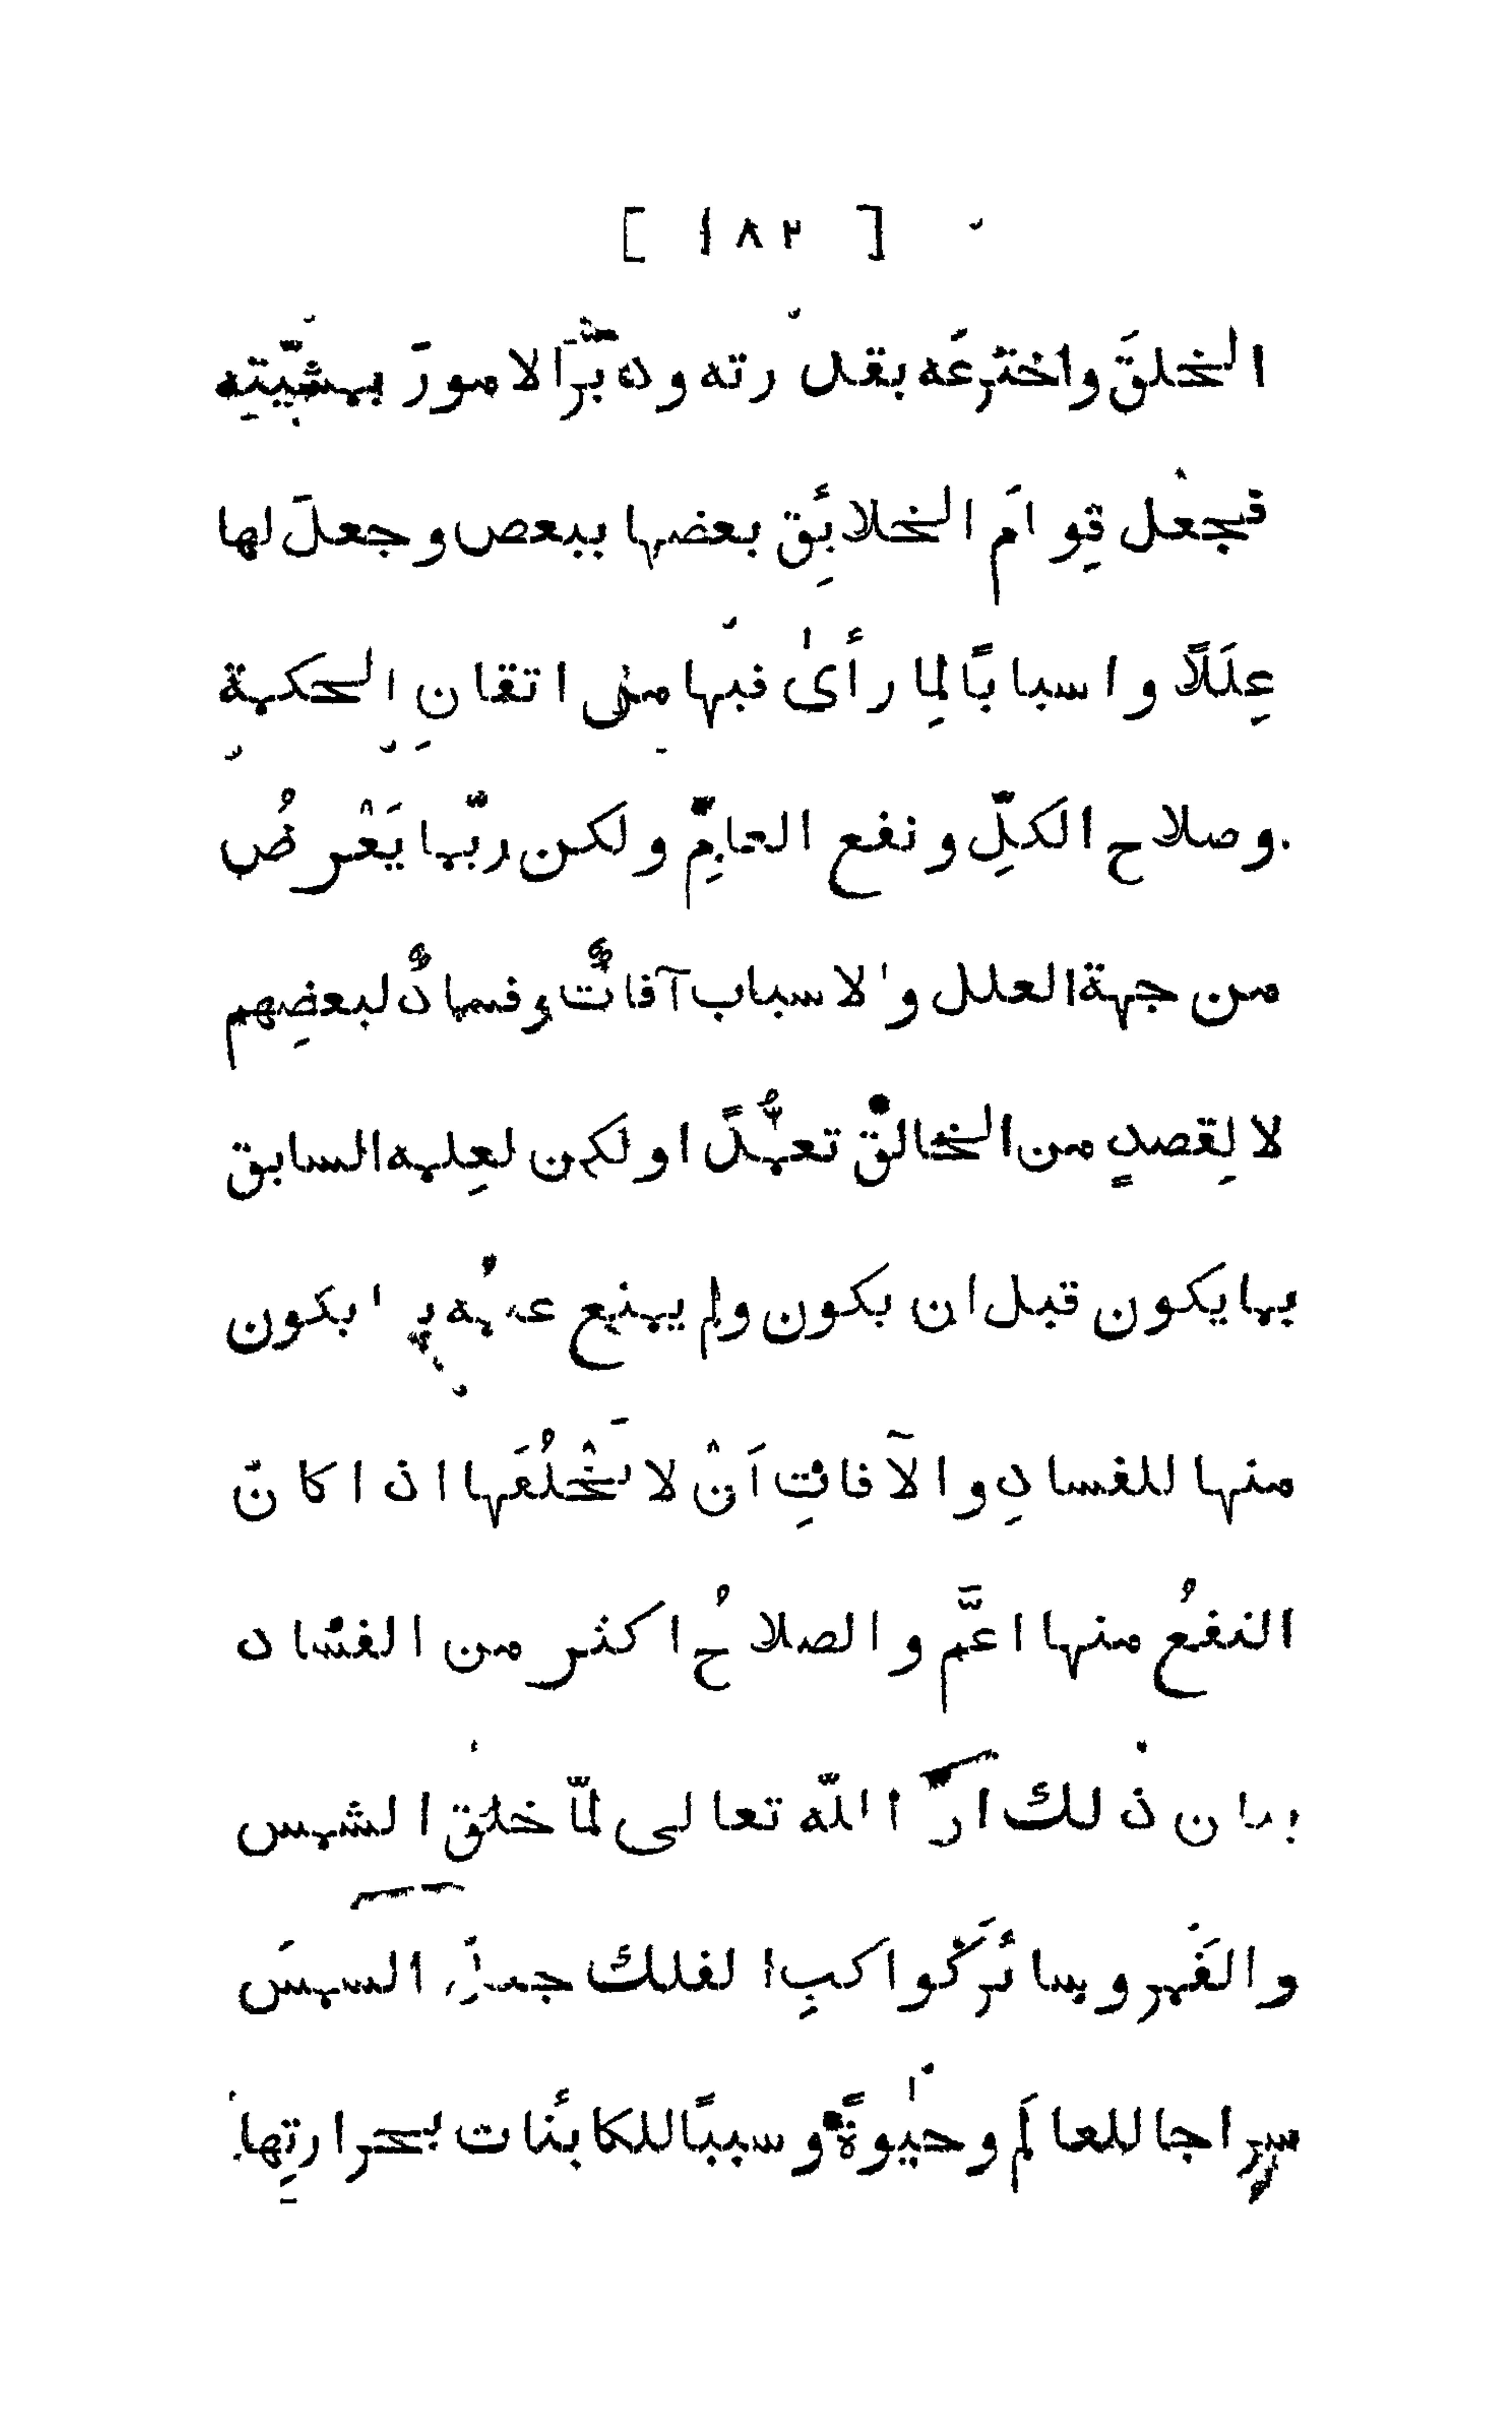 [ ١٨٢ ]
الخلقَ واخترعَه بقدرته ودبّرَ الامورَ بمشيّتِه
فجعل قِوامَ الخلائِق بعضها ببعض وجعلَ لها
عِلَلاً واسباباً لِما رأىٰ فيها من اتقانِ الحكمة
وصلاح الكلِّ ونفع العامِّ ولكن ربّما يَعْرضُ
من جهة العلل والاسباب آفاتٌ وفسادٌ لبعضِهم
لا لِقصدٍ من الخالق تعمُّداً ولكن لعِلمه السابق
بما يكون قبل ان يكون ولم يمنع عِلمُه بما يكون
منها للفسادِ والآفاتِ اَنْ لا يَخْلُقَها اذا كانَ
النفعُ منها اعمَّ والصلاحُ اكثر من الفساد
بيان ذلك انّ اللّه تعالى لمّا خلق الشمس
والقَمر وسائرَ كَواكبِ الفلك جعل الشمسَ
سراجا للعالَم وحيٰوةً وسبباً للكائنات بحرارتِها